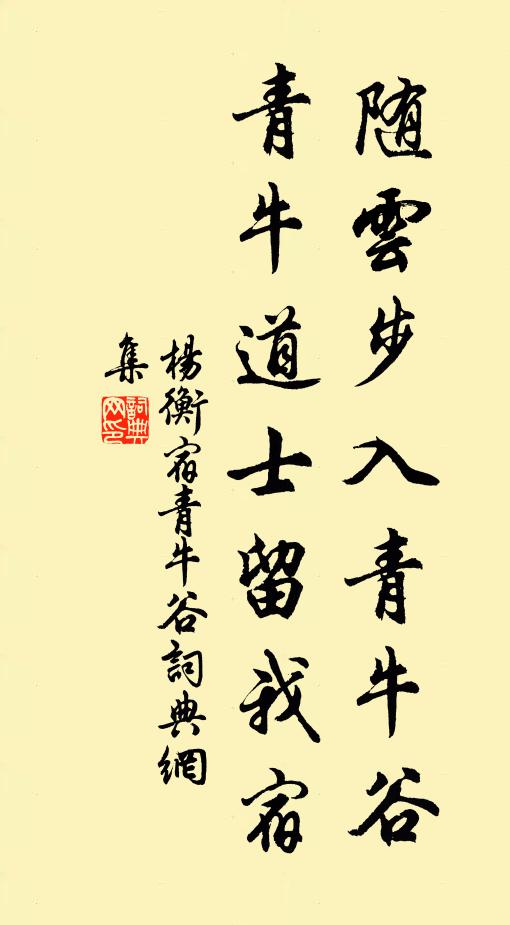 随雲步入青牛谷
青牛道士留我宿
楊衡宿青牛谷詞典網
集
詞典
网印